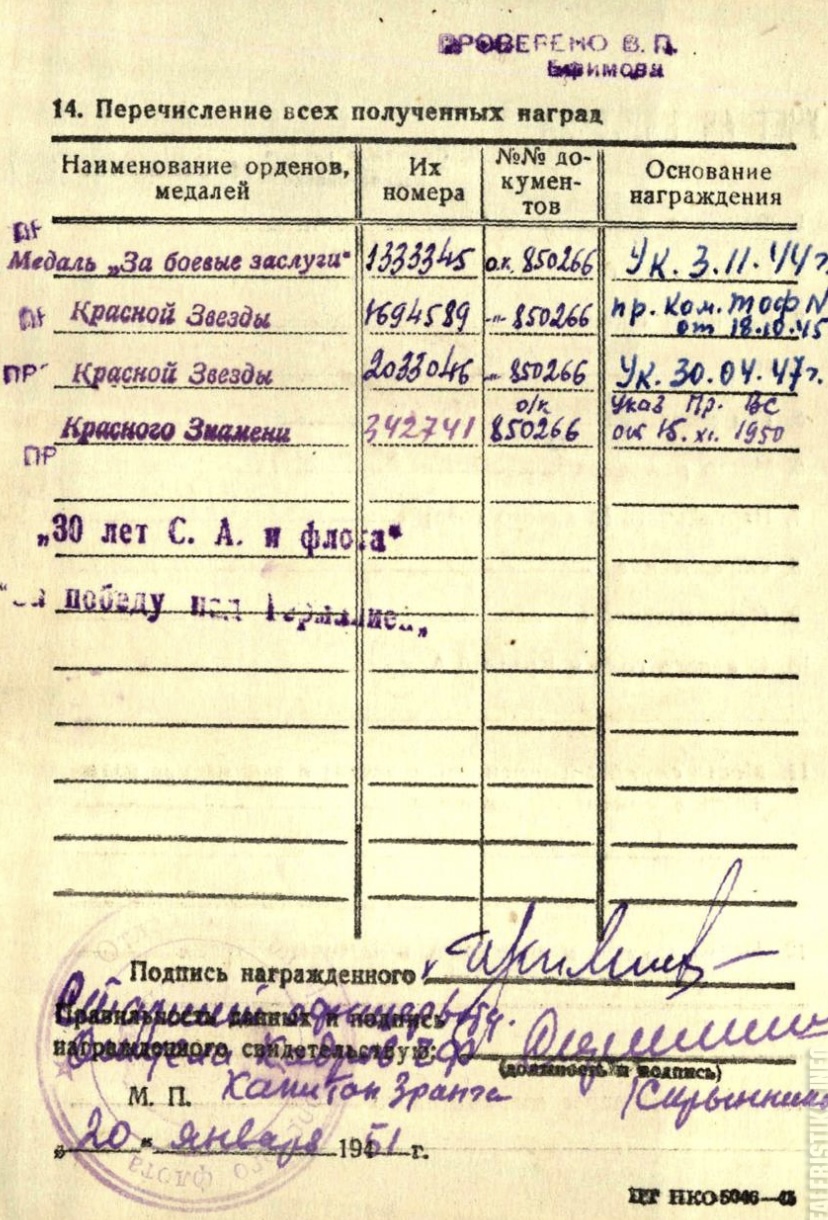 ПРОВЕРЕНО В. П.
Ефимова
14. Перечисление всех полученных наград
Наименование орденов, медалей
Их номера
№№ документов
Основание награждения
ПР
Медаль „За боевые заслуги“ 1333345 о.к. 850266 Ук. 3.11.44г.
ПР Красной Звезды 1694589 -"- 850266 пр. Ком. ТОФ N
от 18.10.45
ПР Красной Звезды 2033046 -"- 850266 Ук. 30.04.47г.
Красного Знамени 342741 о/к 850266 Указ Пр. ВС
от 15.XI.1950
ПР
„30 лет С. А. и флота“
победу над Германией„
Подпись награжденного
Правильность данных и подпись
награжденного свидетельствую:
(должность и подпись)
М. П. Капитан 3 ранга
„20“ января 1951 г.
флота
ЦТ НКО 5046—45
FALERISTIK.INFO